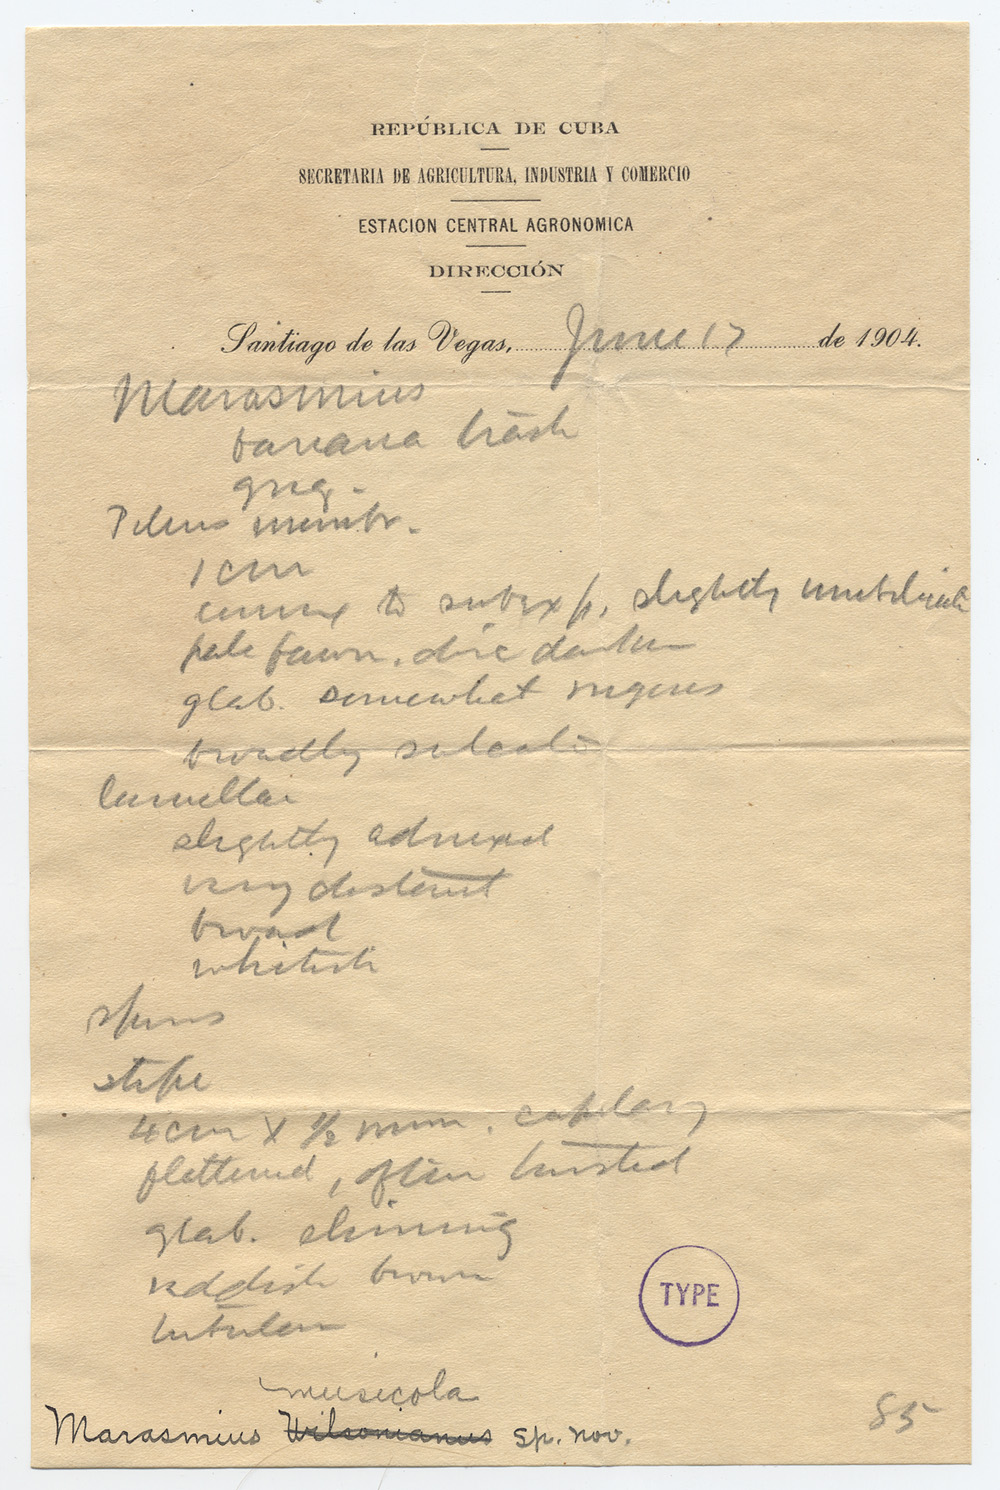 REPÚBLICA DE CUBA
SECRETARIA DE AGRICULTURA, INDUSTRIA Y COMERCIO
ESTACION CENTRAL AGRONOMICA
DIRECCIÓN
Santiago de las Vegas, June 17 de 1904.
Marasmius
banana trash
greg.
Pileus membr.
1 cm
convex to subexp, slightly umbilicate
pale fawn, disc darker
glab. somewhat rugous
broadly sulcate
lamellae
slightly adnexed
very distant
broad
whitish
spores
stipe
4 cm X 1/2 mm. capilary
flattened, often twisted
glab. shining
reddish brown
tubular
TYPE
musicola
Marasmius Wilsonianus sp. nov.
85